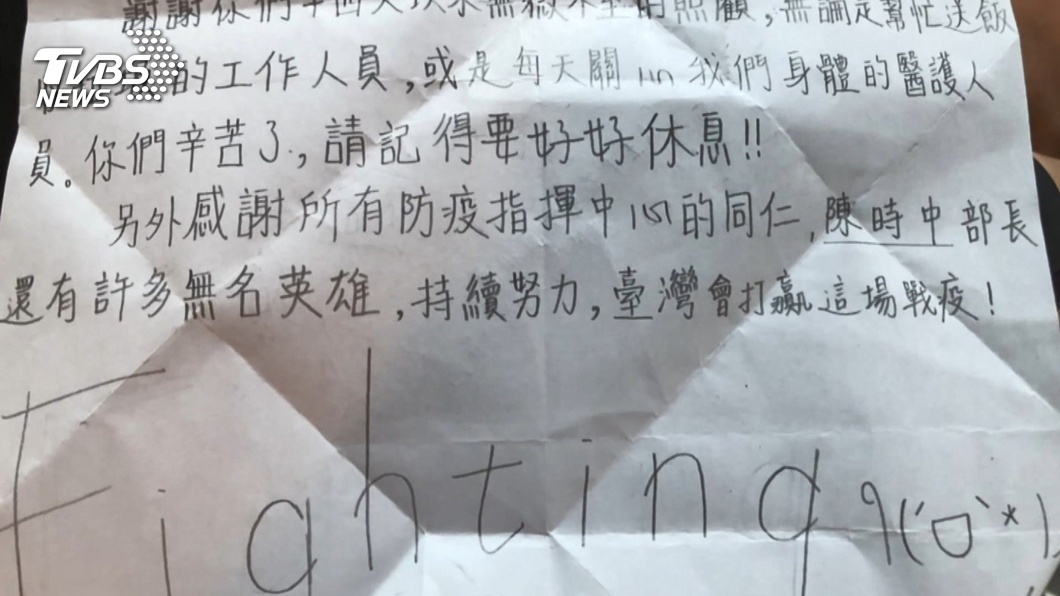 謝謝你們十四天以來無微不至的照顧,無論是幫忙送飯
TVBS
NEWS
的工作人員,或是每天關心我們身體的醫護人
員。你們辛苦了,請記得要好好休息!!
另外感謝所有防疫指揮中心的同仁,陳時中部長
還有許多無名英雄,持續努力,臺灣會打贏這場戰疫!
Fighting q(´ㅁ`*)